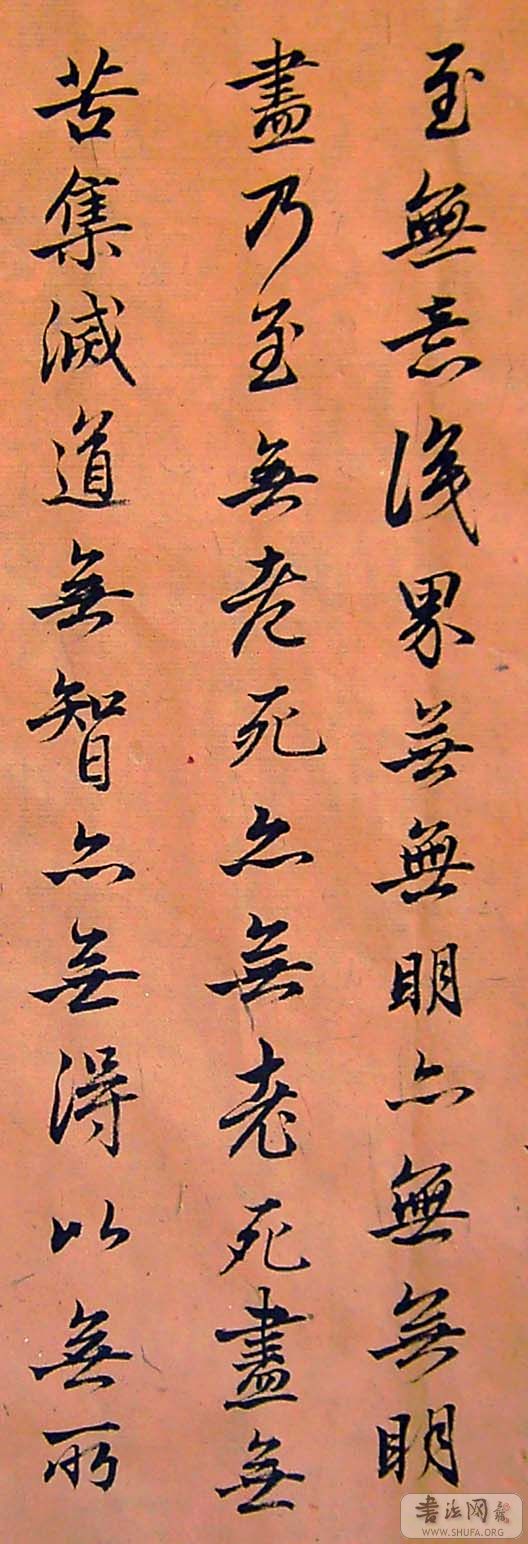 至無意識界無無明亦無無明
盡乃至無老死亦無老死盡無
苦集滅道無智亦無得以無所
书法网
WWW.SHUFA.ORG